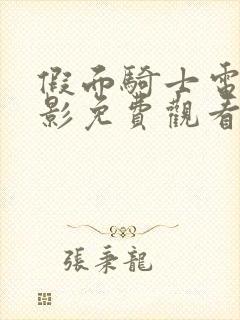 假面騎士電
影免費觀看
張秉龍